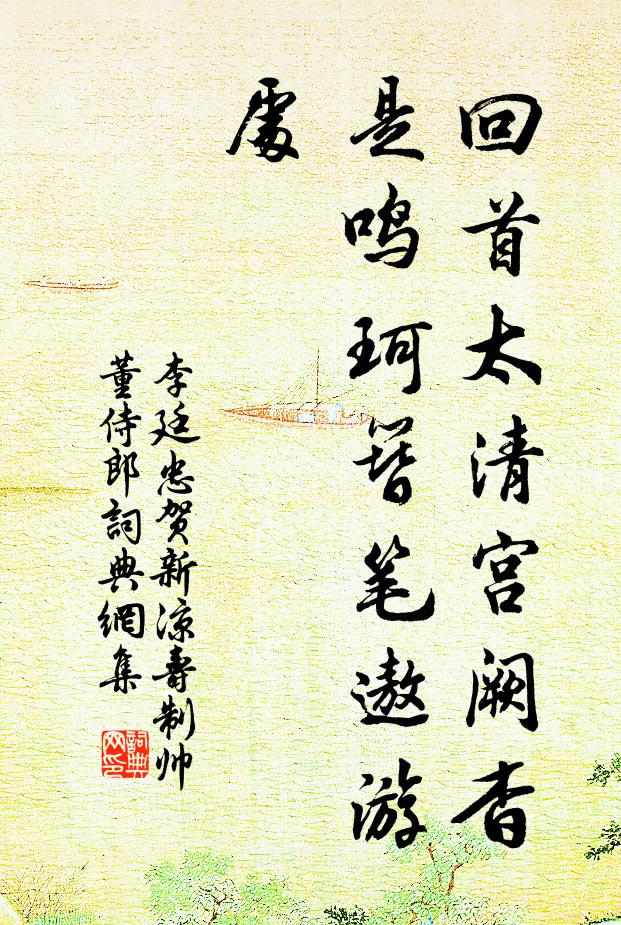 回首太清宫阙杳
是鸣珂簪笔遨游
處
李廷忠贺新凉壽制帅
董侍郎詞典網集
詞典
网印